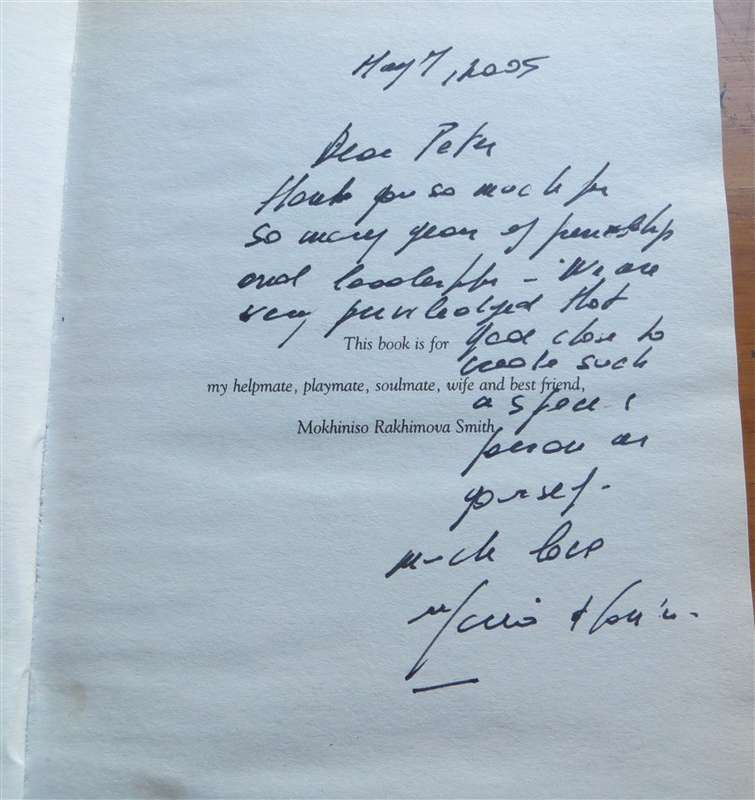 May 7, 2005
Dear Peter
Thank you so much for
so many years of friendship
and leadership - We are
very priviledged that
This book is for
God chose to
create such
my helpmate, playmate, soulmate, wife and best friend,
a special
Mokhiniso Rakhimova Smith
person as
yourself.
much love